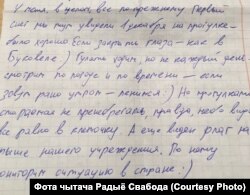 У меня, в целом, все по-прежнему. Первый
снег мы тут увидели 1 декабря на прогулке –
было хорошо. Если закрыть глаза – как в
Буковеле :) Гуляем один, но не каждый день,
смотрим по погоде и по времени – если
зовут рано утром – ленимся :) Но прогулками
стараемся не пренебрегать, правда, небо видно
все равно в клеточку. А еще виден флаг на
крыше нашего учреждения. По нему
мониторим ситуацию в стране :)
Фота чытача Радыё Свабода (Courtesy Photo)